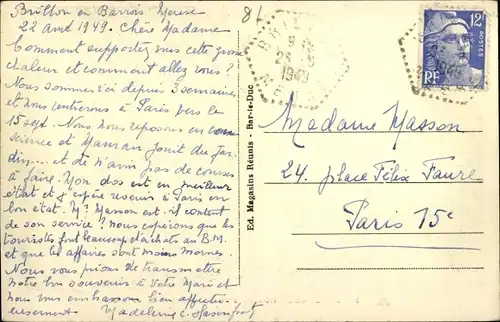 Brillon en Barrois Meuse
22 août 1949. Chère Madame
Comment supportez-vous cette grosse
chaleur et comment allez vous ?
Nous sommes ici depuis 3 semaines
et nous rentrerons à Paris vers le
15 sept. Nous nous reposons en con-
science et Maman jouit du Jar-
din... et de n'avoir pas de courses
à faire. Mon dos est en meilleur
état et j'espère revenir à Paris en
bon état. Mr Masson est-il content
de son service ? nous espérons que les
touristes font beaucoup d'achats au B.M.
et que les affaires sont moins mornes.
Nous vous prions de transmettre
notre bon souvenir à votre Mari et
nous vous embrassons bien affectu-
eusement Madeleine
81
23
1949
12F
POSTES
RF
Ed. Magasins Réunis - Bar-le-Duc
Madame Masson
24. place Félix Faure
Paris 15e